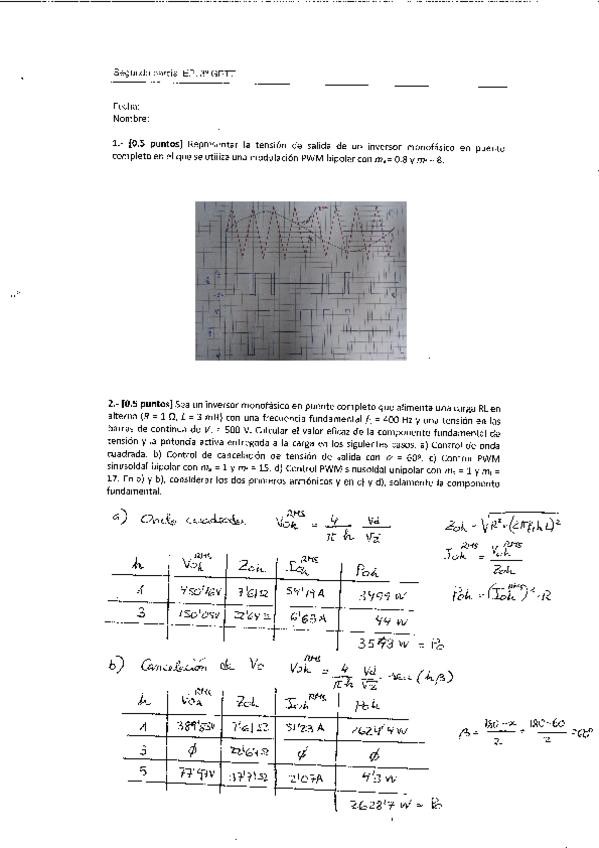 Segundo parcial
Fecha:
Nombre:
1.- [0.5 puntos] Representar la tensión de salida de un inversor monofásico en puente
completo en el que se utiliza una modulación PWM bipolar con ma = 0.8 y mf = 8.
2.- [0.5 puntos] Sea un inversor monofásico en puente completo que alimenta una carga RL en
alterna (R = 1 Ω, L = 3 mH) con una frecuencia fundamental f1 = 400 Hz y una tensión en las
barras de continua de Vd = 500 V. Calcular el valor eficaz de la componente fundamental de
tensión y la potencia activa entregada a la carga en los siguientes casos. a) Control de onda
cuadrada. b) Control de cancelación de tensión de salida con α = 60º. c) Control PWM
sinusoidal bipolar con ma = 1 y mf = 15. d) Control PWM sinusoidal unipolar con ma = 1 y mf =
17. En a) y b), considerar los dos primeros armónicos y en c) y d), solamente la componente
fundamental.
a) Onda cuadrada Voh^RMS = 4/(πh) Vd/√2
Zoh = √R²+(2πf1hL)²
Ioh^RMS = Voh^RMS/Zoh
Poh = (Ioh^RMS)²·R
h Voh^RMS Zoh Ioh^RMS Poh
1 450'16V 7'61Ω 59'19A 3499 W
3 150'05V 22'64Ω 6'63A 44 W
3543 W = Po
b) Cancelación de Vo Voh^RMS = 4/(πh) Vd/√2 · sen(hβ)
h Voh^RMS Zoh Ioh^RMS Poh
β = (180-α)/2 = (180-60)/2 = 60º
1 389'85V 7'61Ω 51'23A 2624'4W
3 ϕ 22'64Ω ϕ ϕ
5 77'97V 37'71Ω 2'07A 4'3W
2628'7 W = Po